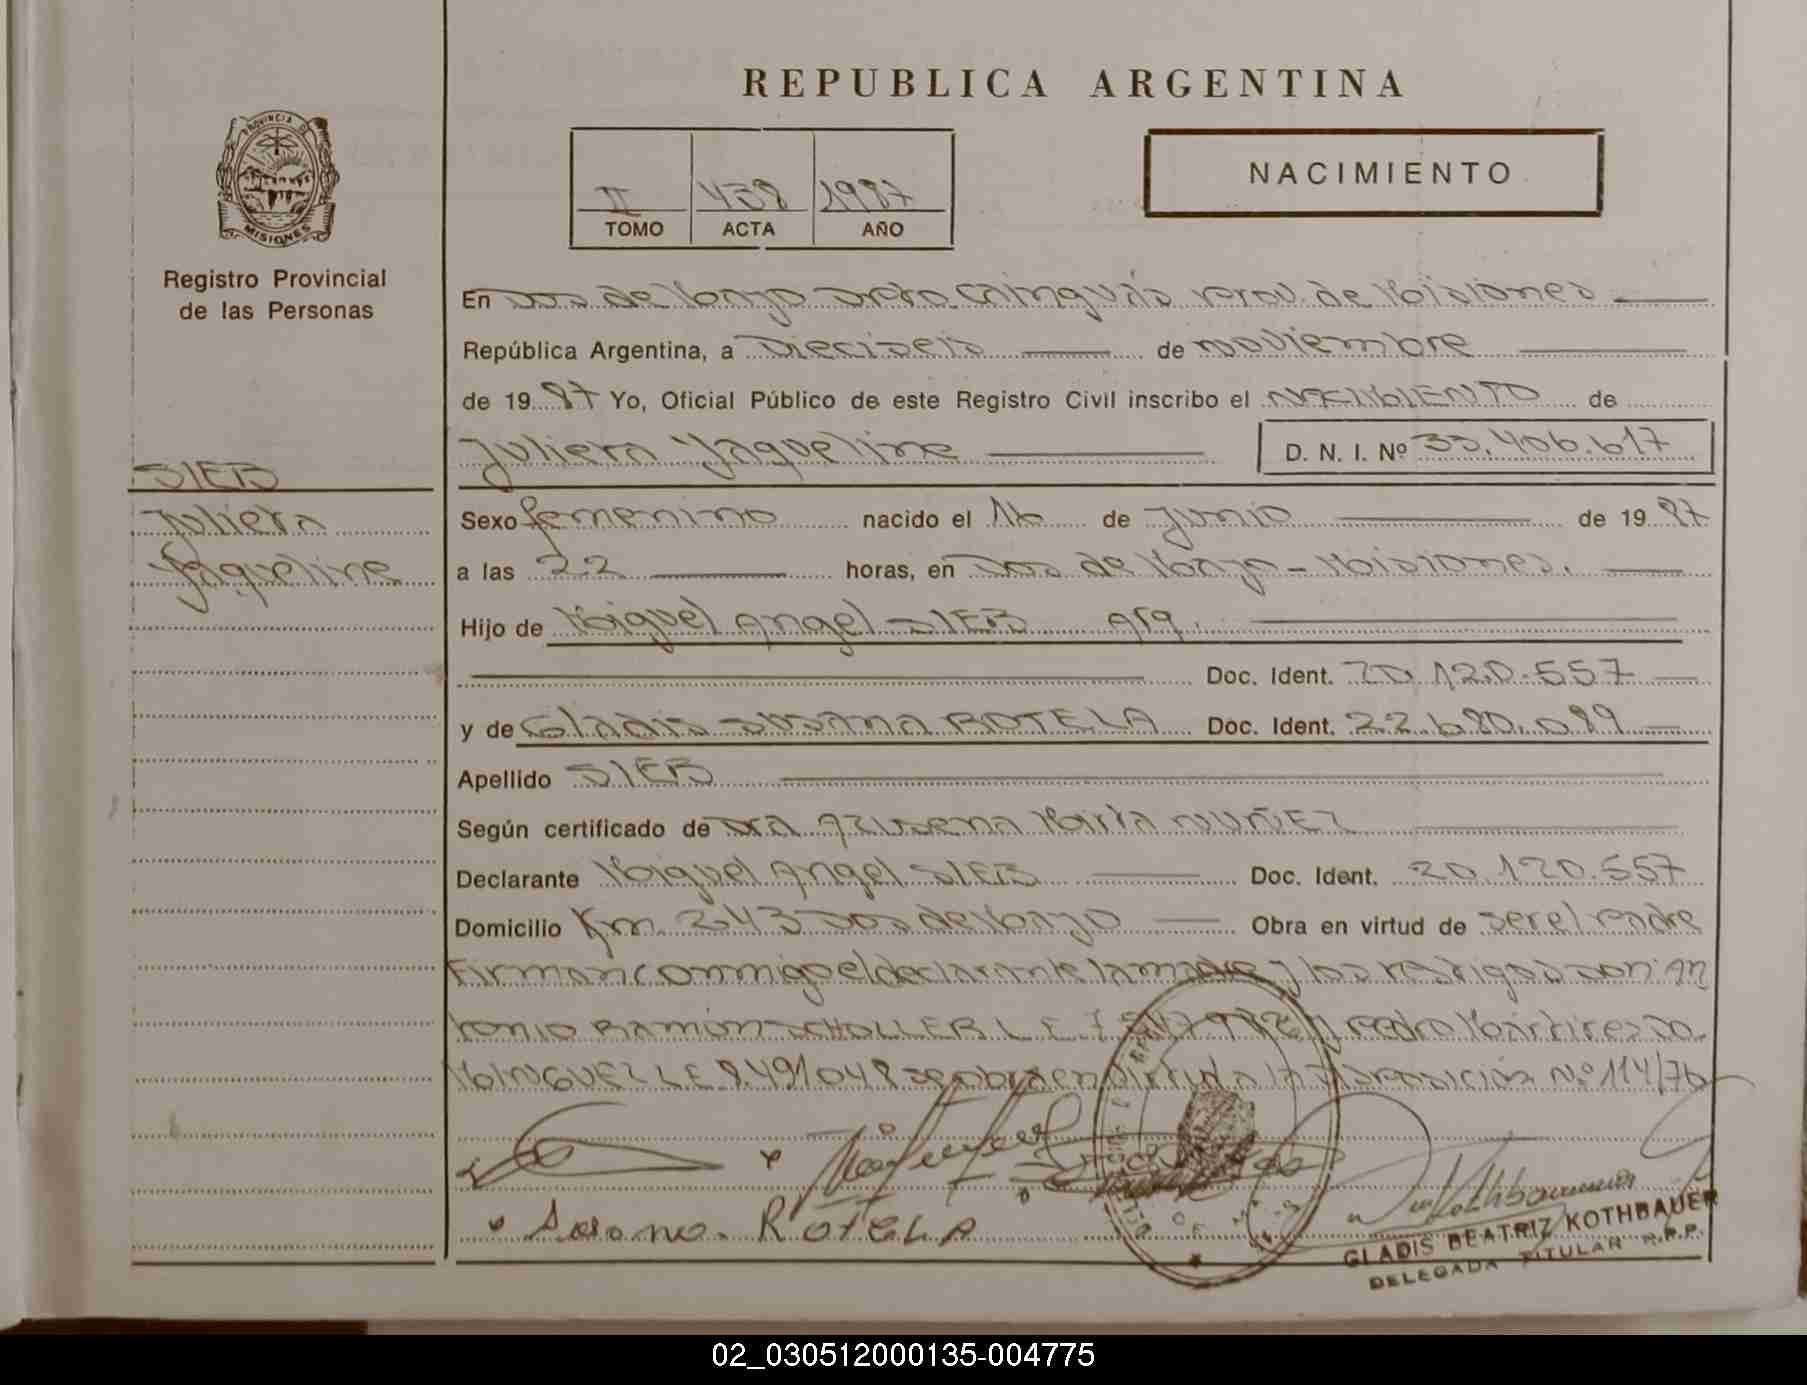 REPUBLICA ARGENTINA
PROVINCIA DE
MISIONES
Registro Provincial
de las Personas
II 438 1987
TOMO ACTA AÑO
NACIMIENTO
En Dos de Mayo Dpto Cainguás Prov. de Misiones
República Argentina, a Dieciseis de noviembre
de 1987 Yo, Oficial Público de este Registro Civil inscribo el NACIMIENTO de
Juliera Yaqueline D. N. I. Nº 33.406.617
SIEB
Juliera
Yaqueline
Sexo femenino nacido el 16 de Junio de 1987
a las 22 horas, en Dos de Mayo - Misiones.
Hijo de Miguel Angel SIEB Arg.
Doc. Ident. 20.120.557
y de Gladis Susana ROTELA Doc. Ident. 22.680.089
Apellido SIEB
Según certificado de Dra Azusena Mirta NUÑEZ
Declarante Miguel Angel SIEB Doc. Ident. 20.120.557
Domicilio Km. 243 Dos de Mayo Obra en virtud de ser el Padre
Firman conmigo el declarante la madre y los testigos Don An
tonio Ramón SCHOLLER L.E. y Pedro Mártires DO
MINGUEZ L.E. 8.491048 se obra en virtud a la Disposición Nº 114/76
Susana. ROTELA
GLADIS BEATRIZ KOTHBAUER
DELEGADA TITULAR R.P.P.
02_030512000135-004775